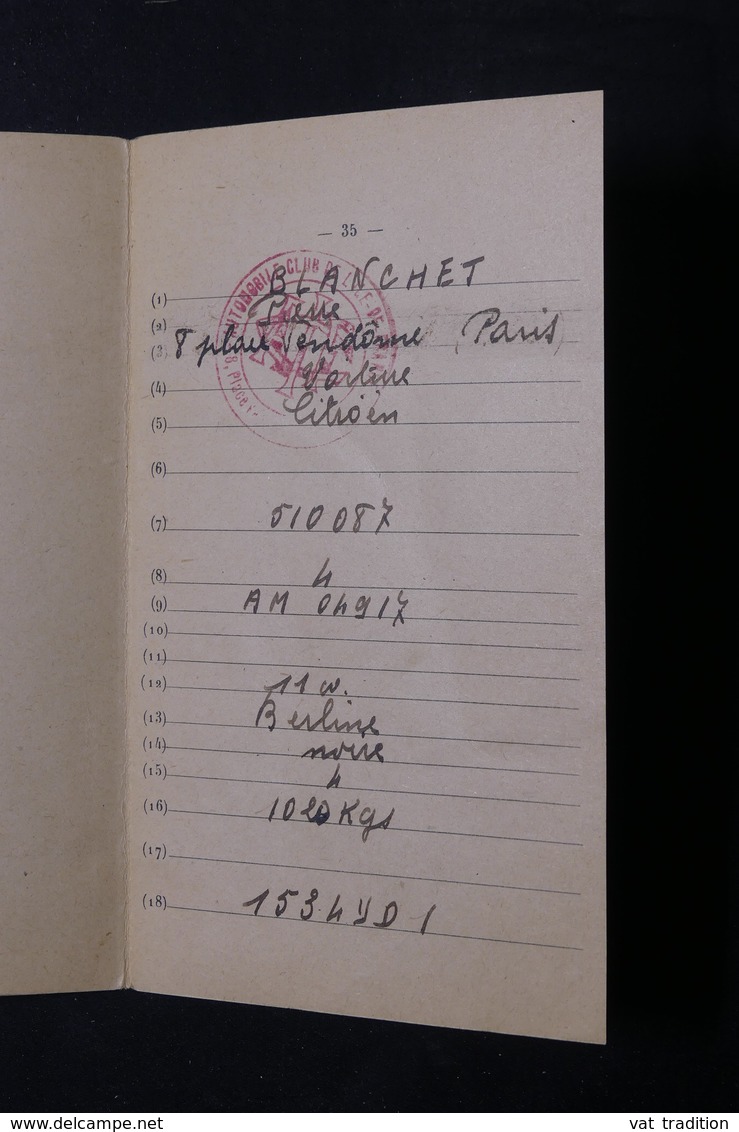 — 35 —
AUTOMOBILE-CLUB DE L'ILE-DE-
8, Place
(1) BLANCHET
(2) Pierre
(3) 8 place Vendôme (Paris)
(4) Voiture
(5) Citroën
(6)
(7) 510087
(8) 4
(9) AM 04917
(10)
(11)
(12) 11 cv.
(13) Berline
(14) noire
(15) 4
(16) 1020 Kgs
(17)
(18) 1534 YD 1
www.delcampe.net
vat tradition